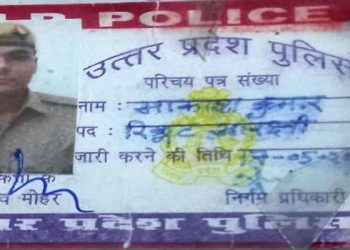 U.P. POLICE
उत्तर प्रदेश पुलिस
परिचय पत्र संख्या
नाम : आकाश कुमार
पद : रिक्रूट आरक्षी
जारी करने की तिथि -05-20
व मोहर
निर्गम प्रधिकारी
उत्तर प्रदेश पुलिस